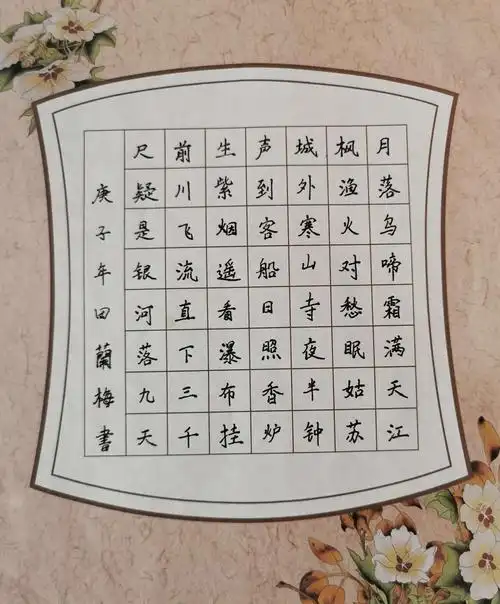 月落乌啼霜满天江
枫渔火对愁眠姑苏
城外寒山寺夜半钟
声到客船日照香炉
生紫烟遥看瀑布挂
前川飞流直下三千
尺疑是银河落九天
庚子年田蘭梅書